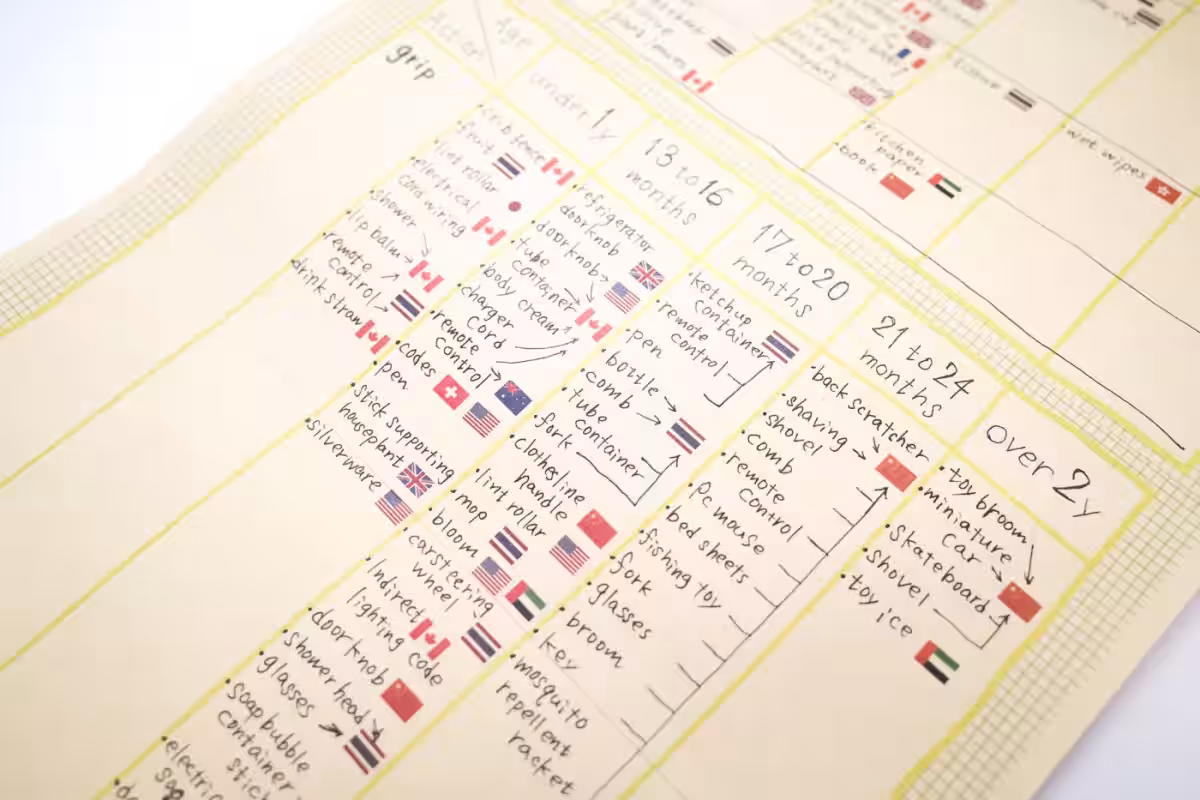 Age
grip
under 1y
13 to 16
months
17 to 20
months
21 to 24
months
over 2y
kitchen
paper
·book
wet wipes
·fruit
·lint rollar
·electrical
cord wiring
·shower
·lip balm
·remote
control
·drink straw
·refrigerator
doorknob
·doorknob
·tube
container
·body cream
·charger
cord
·remote
control
·codes
·pen
·stick supporting
houseplant
·silverware
·ketchup
container
·remote
control
·pen
·bottle
·comb
·tube
container
·fork
·clothesline
handle
·lint rollar
·mop
·bloom
·car steering
wheel
·Indirect
lighting code
·door knob
·shower head
·glasses
·soap bubble
container
stick
·back scratcher
·shaving
·shovel
·comb
·remote
control
·pc mouse
·bed sheets
·fishing toy
·fork
·glasses
·broom
·key
·mosquito
repellent
racket
·toy broom
·miniature
car
·skateboard
·shovel
·toy ice